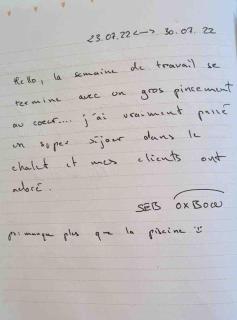 23.07.22 <—> 30.07.22
Hello, la semaine de travail se
termine avec un gros pincement
au coeur.... j'ai vraiment passé
un super séjour dans le
chalet et mes clients ont
adoré.
SEB OXBOW
ps: manque plus que la piscine ☺